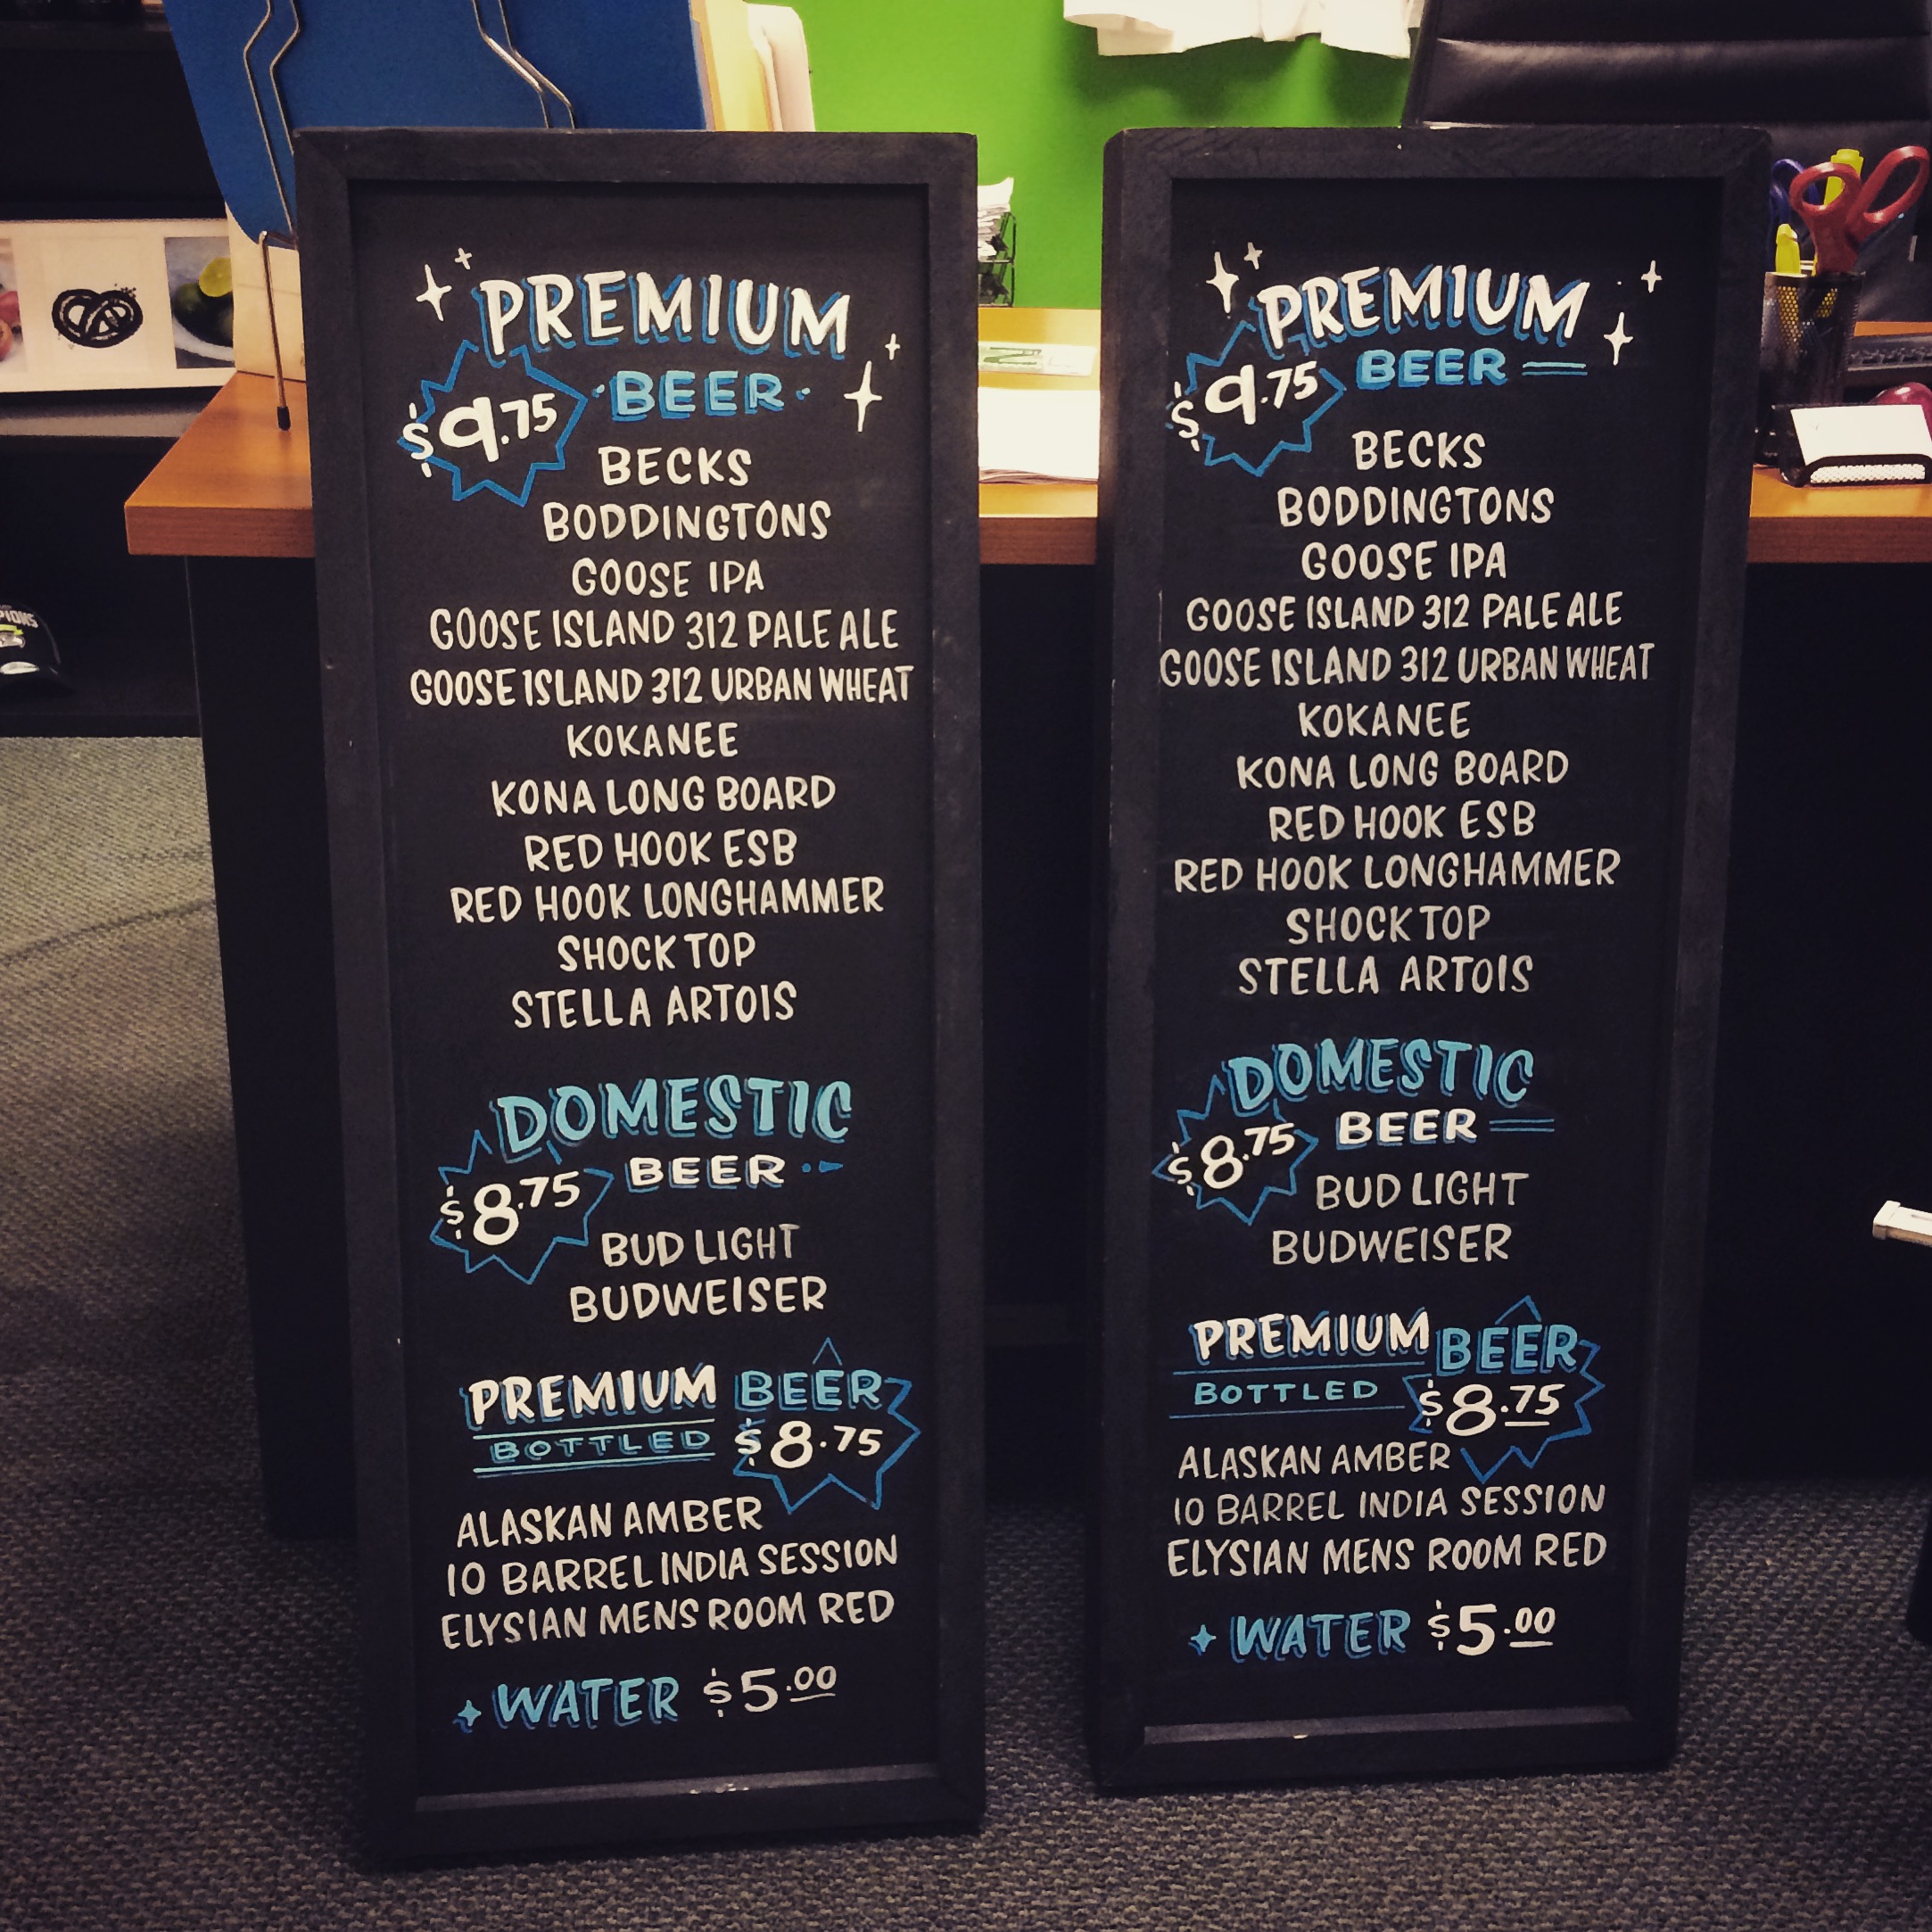 PREMIUM
BEER
$9.75
BECKS
BODDINGTONS
GOOSE IPA
GOOSE ISLAND 312 PALE ALE
GOOSE ISLAND 312 URBAN WHEAT
KOKANEE
KONA LONG BOARD
RED HOOK ESB
RED HOOK LONGHAMMER
SHOCK TOP
STELLA ARTOIS
DOMESTIC
BEER
$8.75
BUD LIGHT
BUDWEISER
PREMIUM BEER
BOTTLED $8.75
ALASKAN AMBER
10 BARREL INDIA SESSION
ELYSIAN MENS ROOM RED
WATER $5.00
PREMIUM
BEER
$9.75
BECKS
BODDINGTONS
GOOSE IPA
GOOSE ISLAND 312 PALE ALE
GOOSE ISLAND 312 URBAN WHEAT
KOKANEE
KONA LONG BOARD
RED HOOK ESB
RED HOOK LONGHAMMER
SHOCK TOP
STELLA ARTOIS
DOMESTIC
BEER
$8.75
BUD LIGHT
BUDWEISER
PREMIUM BEER
BOTTLED $8.75
ALASKAN AMBER
10 BARREL INDIA SESSION
ELYSIAN MENS ROOM RED
WATER $5.00